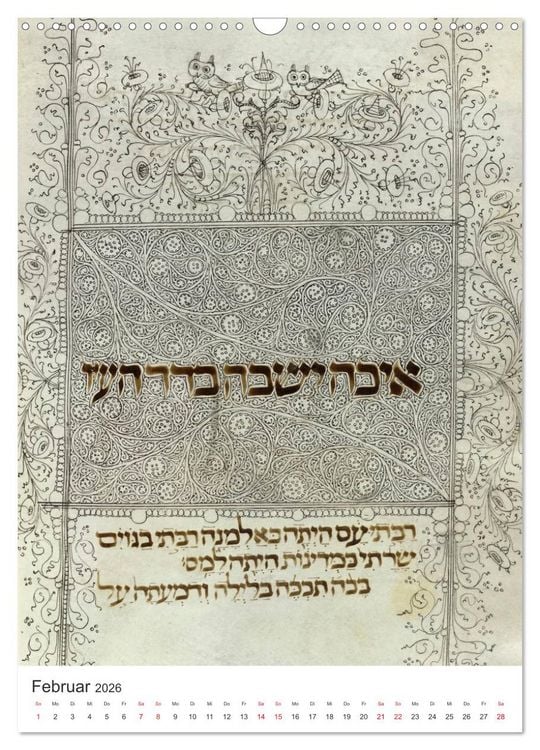 איכה ישבה בדד העיר
רבתי עם היתה כאלמנה רבתי בגוים
שרתי במדינות היתה למס׃
בכה תבכה בלילה ודמעתה על
Februar 2026
So Mo Di Mi Do Fr Sa So Mo Di Mi Do Fr Sa So Mo Di Mi Do Fr Sa So Mo Di Mi Do Fr Sa
1 2 3 4 5 6 7 8 9 10 11 12 13 14 15 16 17 18 19 20 21 22 23 24 25 26 27 28